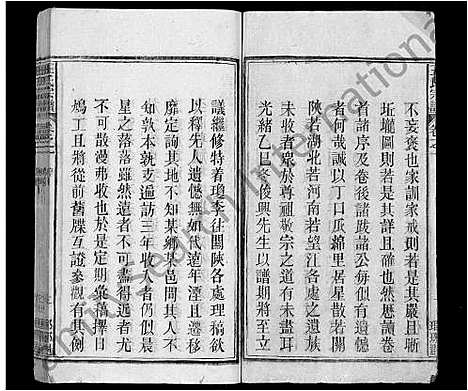 不妄褒也家訓家戒則若是其嚴且晰
坵壠圖則若是其詳且確也然歷讀卷
首諸序及卷後諸跋諸公每似有遺憾
者何哉誠以丁口瓜綿里居星散若閩
陝若湖北若河南若望江各處之遺族
未收者寔於尊祖敬宗之道有未盡耳
光緒乙巳年俊興先生以譜期將至立
議繼修特着瓊李往閩陝各處理稿欲
以釋先人遺憾無如代遠年湮且遷移
靡定詢其地不知某鄉某邑問其人不
敦本執支遍訪三年收入者仍似晨
星之落落雖然遺者不可盡得遠者尤
不可散漫弗收也於是定期彙稿擇日
鳩工且將從前舊牒互證參觀有其倒